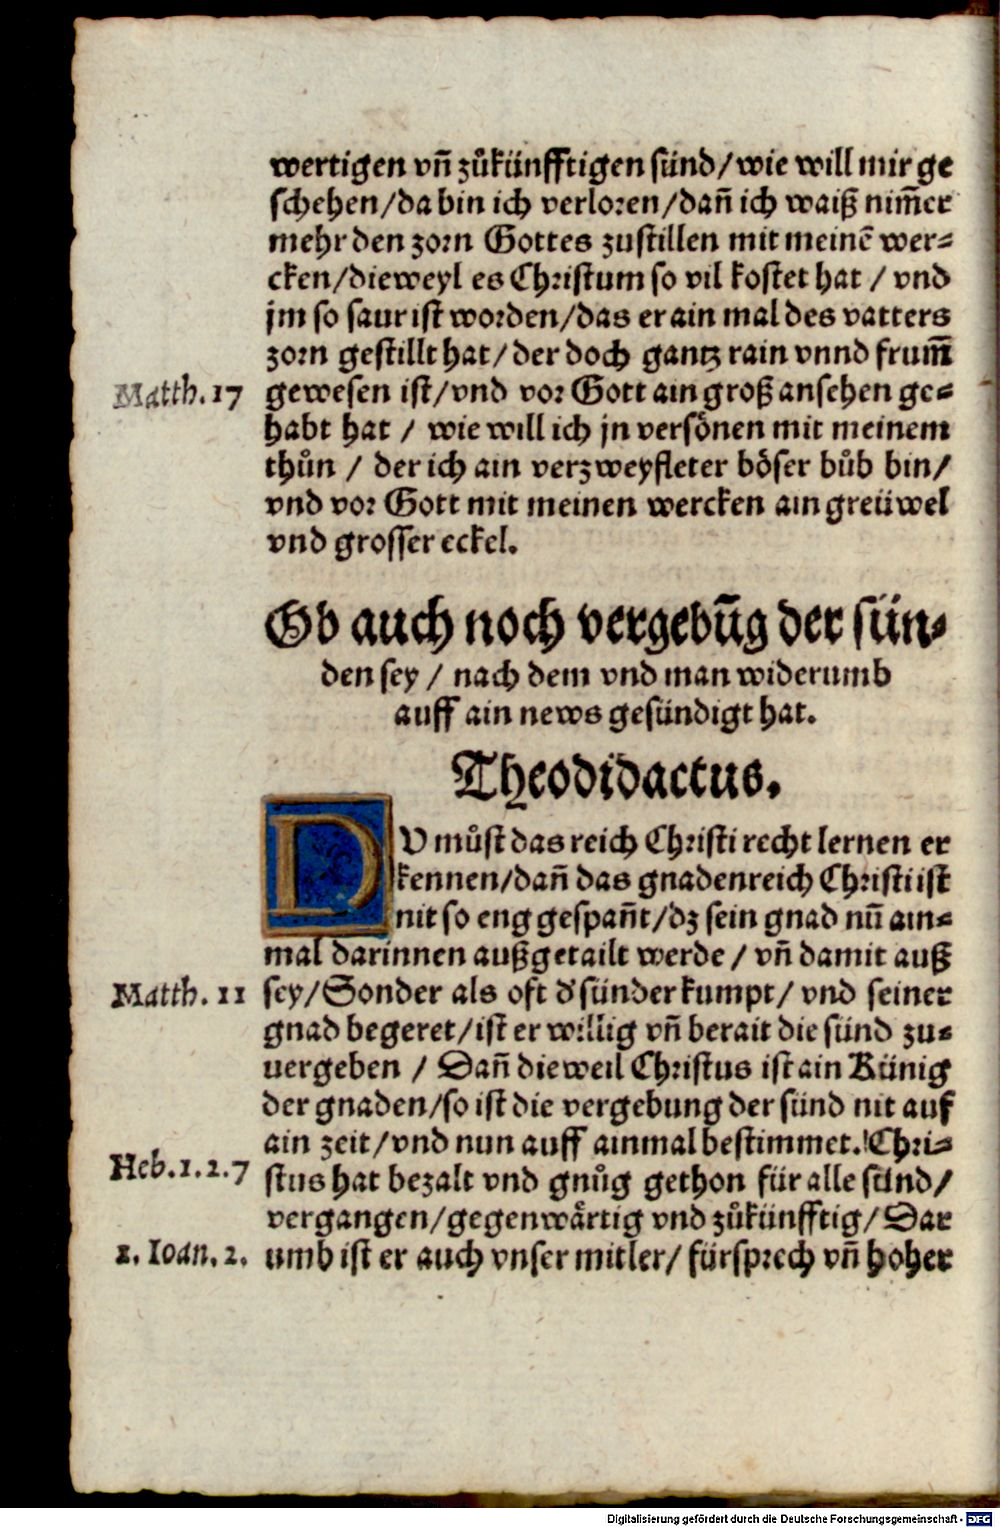 wertigen vn̄ zůkünfftigen sünd/wie will mir ge
schehen/da bin ich verloren/dañ ich waiß nim̄er
mehr den zorn Gottes zustillen mit meinē wer⸗
cken/dieweyl es Christum so vil kostet hat / vnd
jm so saur ist worden/das er ain mal des vatters
zorn gestillt hat/der doch gantz rain vnnd frum̄
Matth. 17
gewesen ist/vnd vor Gott ain groß ansehen ge⸗
habt hat / wie will ich jn versönen mit meinem
thůn / der ich ain verzweyfleter böser bůb bin/
vnd vor Gott mit meinen wercken ain greüwel
vnd grosser eckel.
Ob auch noch vergebūg der sün⸗
den sey / nach dem vnd man widerumb
auff ain news gesündigt hat.
Theodidactus.
DV můst das reich Christi recht lernen er
kennen/dañ das gnadenreich Christi ist
nit so eng gespañt/dz sein gnad nū ain⸗
mal darinnen außgetailt werde / vn̄ damit auß
Matth. 11
sey/Sonder als oft d' sünder kumpt/ vnd seiner
gnad begeret/ist er willig vn̄ berait die sünd zu⸗
uergeben / Dañ dieweil Christus ist ain Künig
der gnaden/so ist die vergebung der sünd nit auf
ain zeit/vnd nun auff ainmal bestimmet. Chri⸗
Heb. 1. 2. 7
stus hat bezalt vnd gnůg gethon für alle sünd/
vergangen/gegenwärtig vnd zůkünfftig/Dar
1. Ioan. 2.
umb ist er auch vnser mitler/ fürsprech vn̄ hoher
Digitalisierung gefördert durch die Deutsche Forschungsgemeinschaft - DFG